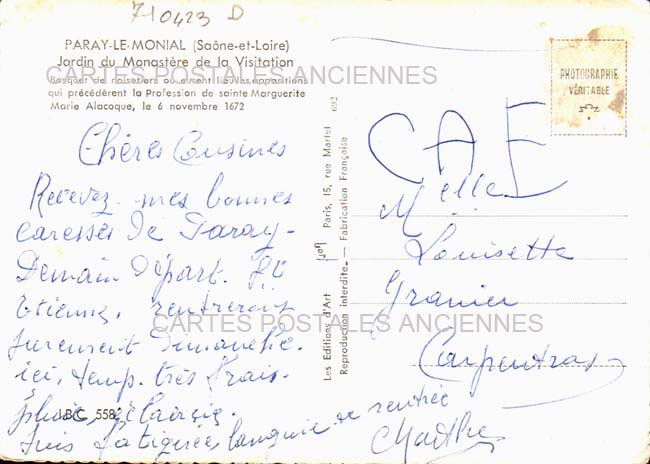 710423 D
PARAY-LE-MONIAL (Saône-et-Loire)
Jardin du Monastère de la Visitation
CARTES POSTALES ANCIENNES
Bosquet de noisetiers où eurent lieu les apparitions
qui précédèrent la Profession de sainte Marguerite
Marie Alacoque, le 6 novembre 1672
Chères Cousines
Recevez mes bonnes
caresses de Paray-
Demain départ.
Etienne, rentreront
surement Dimanche.
ici, temp. très frais.
pluie, éclaircie.
suis fatiguée, languie de rentrée
Marthe
I.B.C. 558
CARTES POSTALES ANCIENNES
Les Editions d'Art
Paris, 15, rue Martel
692
Reproduction interdite. — Fabrication Française
PHOTOGRAPHIE
VÉRITABLE
CAE
Melle
Louisette
Granier
Carpentras